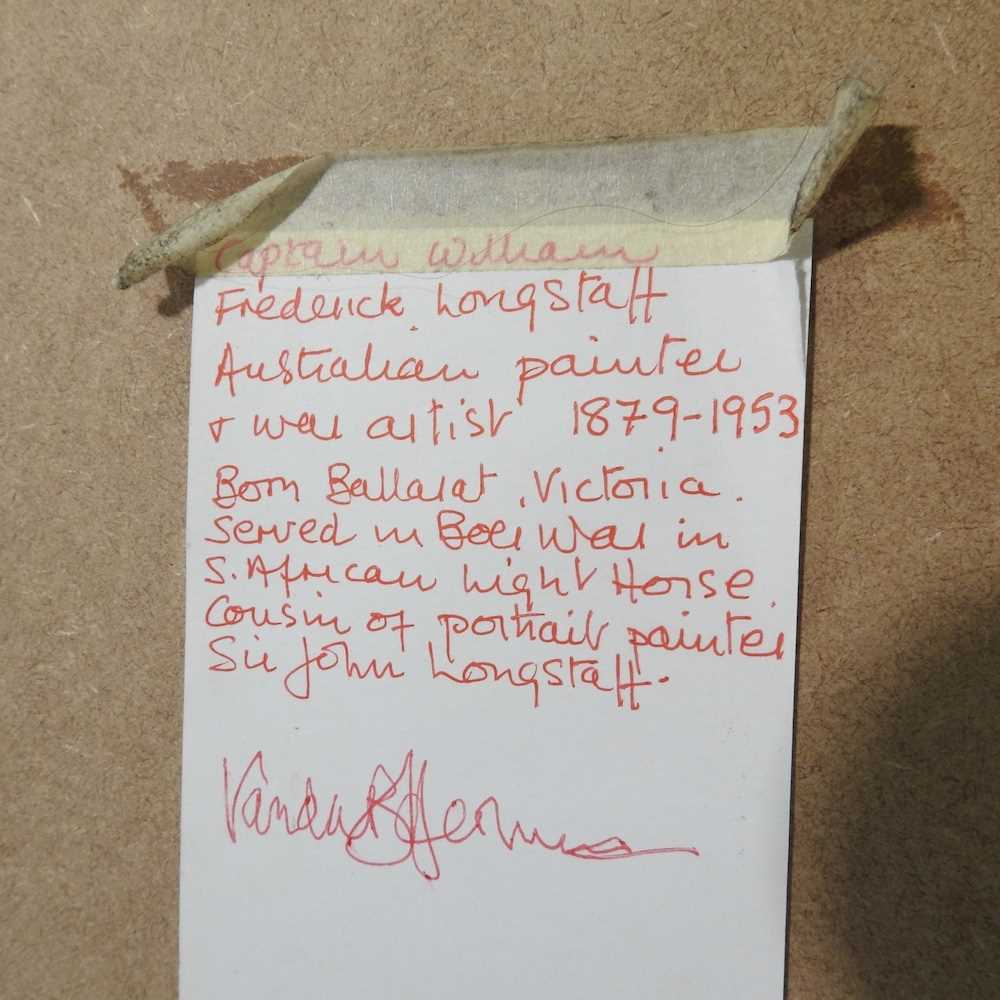 Captain William
Frederick Longstaff
Australian painter
+ war artist 1879-1953
Born Ballarat, Victoria.
Served in Boer War in
S. African Light Horse.
Cousin of portrait painter
Sir John Longstaff.